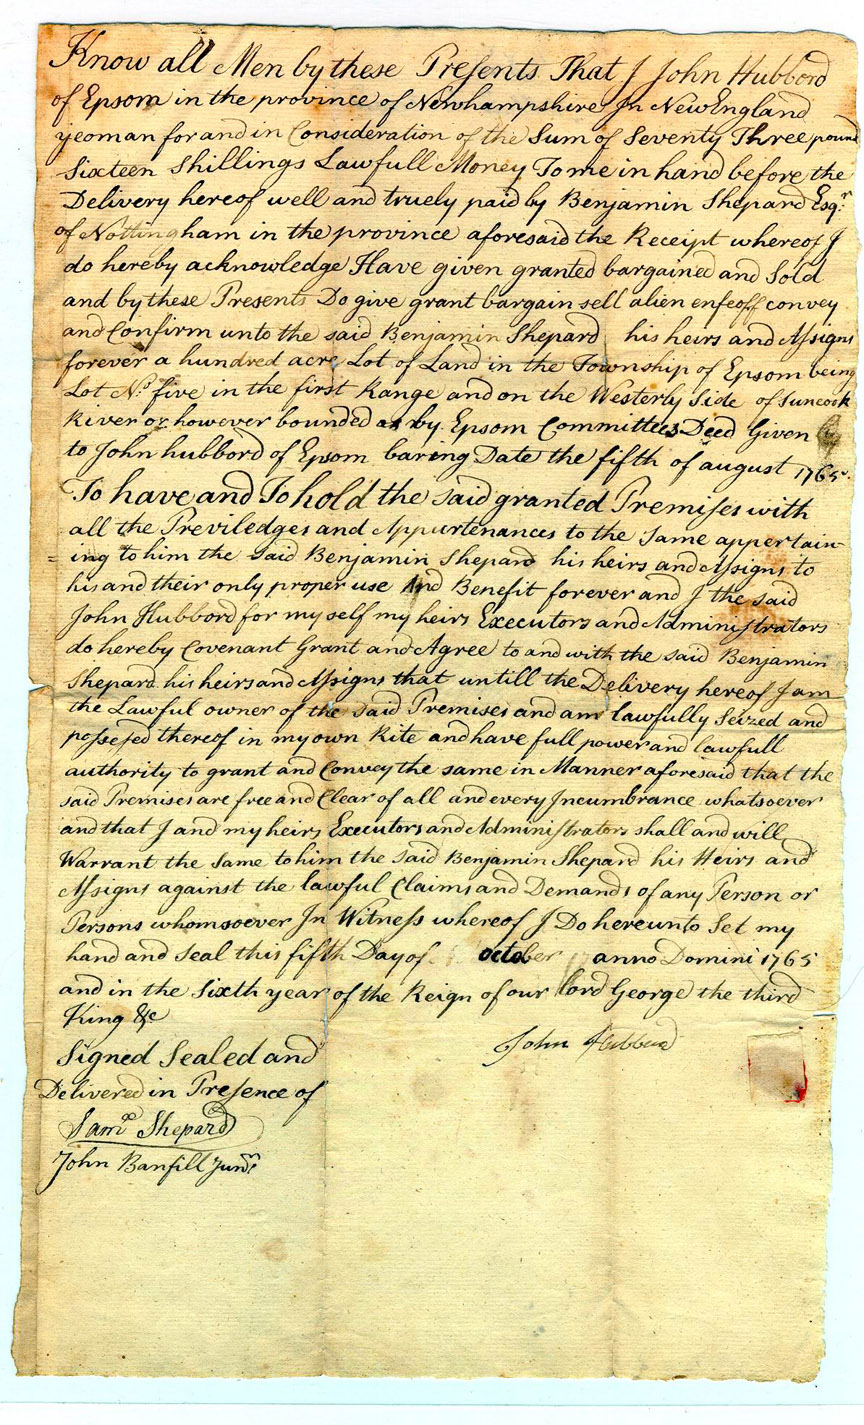 Know all Men by these Presents That I John Hubbord
of Epsom in the province of Newhampshire In New England
yeoman for and in Consideration of the Sum of Seventy Three pound
Sixteen Shillings Lawfull Money To me in hand before the
Delivery hereof well and truely paid by Benjamin Shepard Esqr.
of Nottingham in the province aforesaid the Receipt whereof I
do hereby acknowledge Have given granted bargained and Sold
and by these Presents Do give grant bargain sell alien enfeoff convey
and Confirm unto the said Benjamin Shepard his heirs and Assigns
forever a hundred acre Lot of Land in the Township of Epsom being
Lot No. five in the first Range and on the Westerly Side of Suncook
River or however bounded as by Epsom Committees Deed Given
to John hubbord of Epsom baring Date the fifth of august 1765.
To have and To hold the said granted Premises with
all the Previledges and Appurtenances to the Same appertain-
ing to him the Said Benjamin Shepard his heirs and Assigns to
his and their only proper use And Benefit forever and I the said
John Hubbord for my self my heirs Executors and Administrators
do hereby Covenant Grant and Agree to and with the said Benjamin
Shepard his heirs and Assigns that untill the Delivery hereof I am
the Lawful owner of the Said Premises and am lawfully Seized and
possesed thereof in my own Rite and have full power and lawfull
authority to grant and Convey the same in Manner aforesaid that the
said Premises are free and Clear of all and every Incumbrance whatsoever
and that I and my heirs Executors and Administrators shall and will
Warrant the Same to him the Said Benjamin Shepard his Heirs and
Assigns against the lawful Claims and Demands of any Person or
Persons whomsoever In Witness whereof I Do hereunto Set my
hand and Seal this fifth Day of october anno Domini 1765
and in the Sixth year of the Reign of our lord George the third
King &c
John Hubbard
Signed Sealed and
Delivered in Presence of
Samll Shepard
John Banfill Junr.